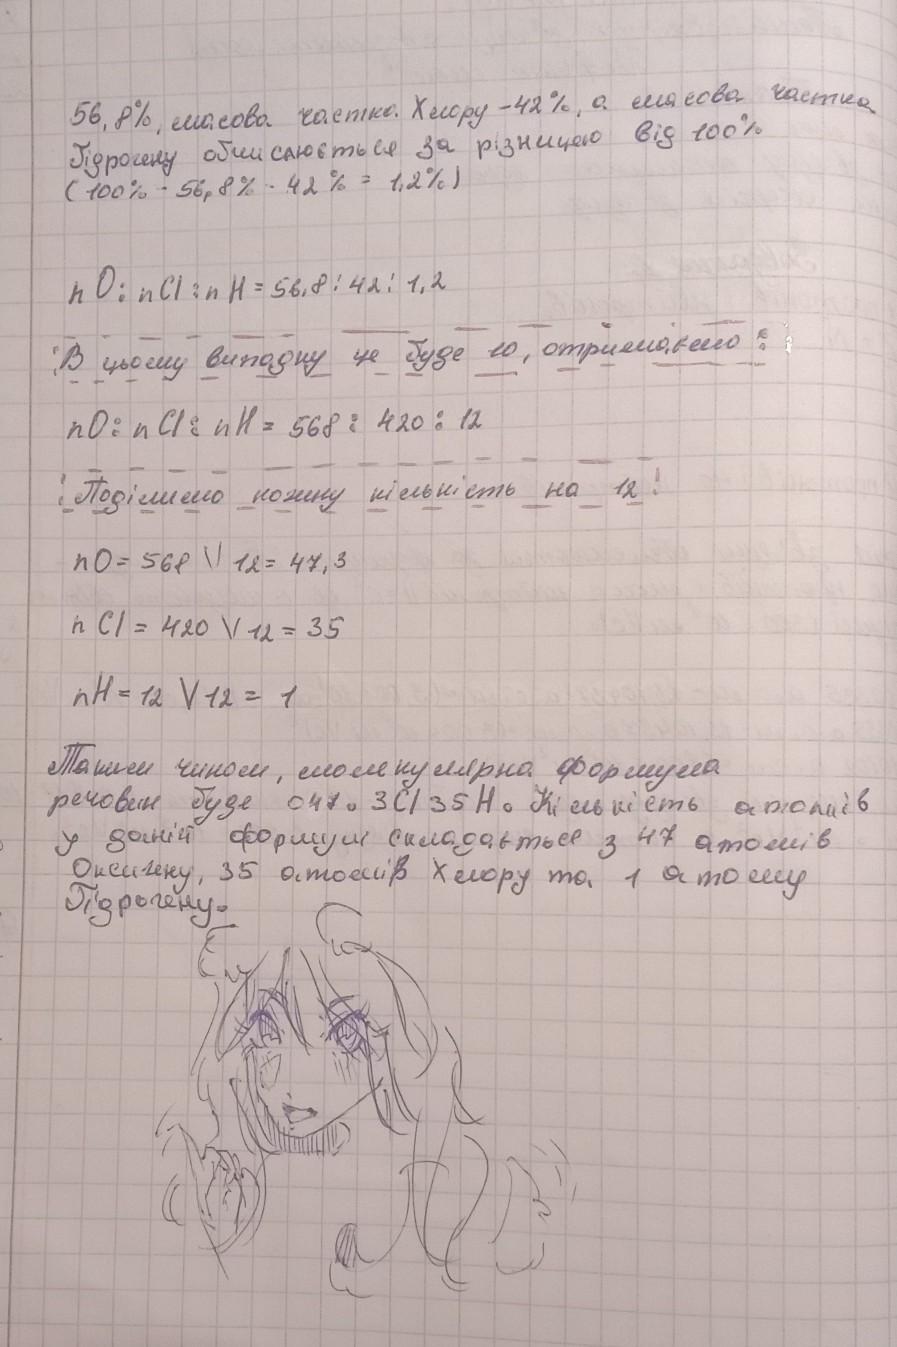 56,8%, масова частка Хлору - 42%, а масова частка
Гідрогену обчислюється за різницею від 100%
(100% - 56,8% - 42% = 1,2%)
nO : nCl : nH = 56,8 : 42 : 1,2
В цьому випадку це буде 10, отримаємо :
nO : nCl : nH = 568 : 420 : 12
Поділимо кожну кількість на 12
nO = 568 \/ 12 = 47,3
nCl = 420 \/ 12 = 35
nH = 12 \/ 12 = 1
Таким чином, молекулярна формула
речовин буде O47.3Cl35H. Кількість атомів
у даній формули складається з 47 атомів
Оксигену, 35 атомів Хлору та 1 атому
Гідрогену.